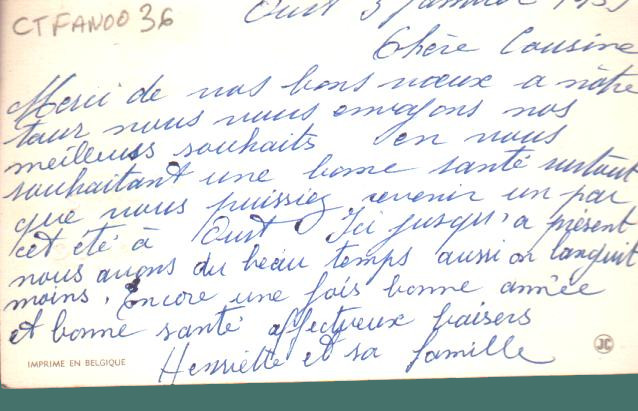 CTFAN00 36
Oust 3 janvier
Chère Cousine
Merci de vos bons vœux a nôtre
tour nous vous envoyons nos
meilleurs souhaits en vous
souhaitant une bonne santé surtout
que vous puissiez revenir un par
cet été à Oust Ici jusqu'a présent
nous avons du beau temps aussi on languit
moins. Encore une fois bonne année
et bonne santé affectueux baisers
Henriette et sa famille
IMPRIME EN BELGIQUE
JC